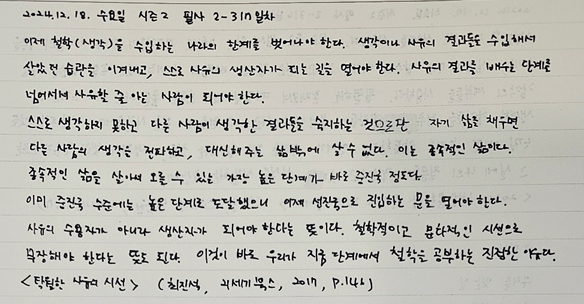 2024.12.18. 수요일 시즌2 필사 2-317일차
이제 철학(생각)을 수입하는 나라의 한계를 벗어나야 한다. 생각이나 사유의 결과들을 수입해서
살았던 습관을 이겨내고, 스스로 사유의 생산자가 되는 길을 열어야 한다. 사유의 결과를 배우는 단계를
넘어서서 사유할 줄 아는 사람이 되어야 한다.
스스로 생각하지 못하고 다른 사람이 생각한 결과들을 숙지하는 것으로만 자기 삶을 채우면
다른 사람의 생각을 전파하고, 대신해주는 삶밖에 살 수 없다. 이는 종속적인 삶이다.
종속적인 삶을 살아서 오를 수 있는 가장 높은 단계가 바로 중진국 정도다.
이미 중진국 수준에는 높은 단계로 도달했으니 이제 선진국으로 진입하는 문을 열어야 한다.
사유의 수용자가 아니라 생산자가 되어야 한다는 뜻이다. 철학적이고 문화적인 시선으로
무장해야 한다는 뜻도 된다. 이것이 바로 우리가 지금 단계에서 철학을 공부하는 진짜 이유다.
<탁월한 사유의 시선> (최진석, 21세기북스, 2017, p.146)